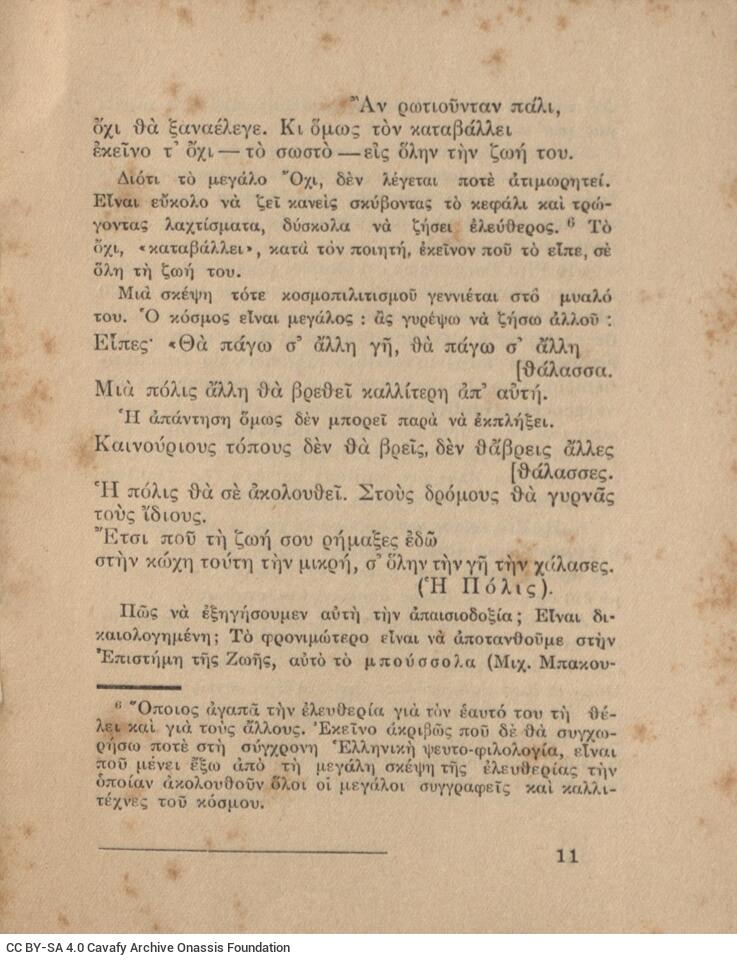 Ἂν ρωτιοῦνταν πάλι,
ὄχι θὰ ξαναέλεγε. Κι ὅμως τὸν καταβάλλει
ἐκεῖνο τ' ὄχι — τὸ σωστὸ — εἰς ὅλην τὴν ζωή του.
Διότι τὸ μεγάλο Ὄχι, δὲν λέγεται ποτὲ ἀτιμωρητεί.
Εἶναι εὔκολο νὰ ζεῖ κανεὶς σκύβοντας τὸ κεφάλι καὶ τρώ-
γοντας λαχτίσματα, δύσκολα νὰ ζήσει ἐλεύθερος. ⁶ Τὸ
ὄχι, «καταβάλλει», κατὰ τὸν ποιητή, ἐκεῖνον ποῦ τὸ εἶπε, σὲ
ὅλη τὴ ζωή του.
Μιὰ σκέψη τότε κοσμοπιλιτισμοῦ γεννιέται στὸ μυαλό
του. Ὁ κόσμος εἶναι μεγάλος : ἂς γυρέψω νὰ ζήσω ἀλλοῦ :
Εἶπες· «Θὰ πάγω σ' ἄλλη γῆ, θὰ πάγω σ' ἄλλη
[θάλασσα.
Μιὰ πόλις ἄλλη θὰ βρεθεῖ καλλίτερη ἀπ' αὐτή.
Ἡ ἀπάντηση ὅμως δὲν μπορεῖ παρὰ νὰ ἐκπλήξει.
Καινούριους τόπους δὲν θὰ βρεῖς, δὲν θἄβρεις ἄλλες
[θάλασσες.
Ἡ πόλις θὰ σὲ ἀκολουθεῖ. Στοὺς δρόμους θὰ γυρνᾶς
τοὺς ἴδιους.
Ἔτσι ποῦ τὴ ζωή σου ρήμαξες ἐδῶ
στὴν κώχη τούτη τὴν μικρή, σ' ὅλην τὴν γῆ τὴν χάλασες.
(Ἡ Πόλις).
Πῶς νὰ ἐξηγήσουμεν αὐτὴ τὴν ἀπαισιοδοξία; Εἶναι δι-
καιολογημένη; Τὸ φρονιμώτερο εἶναι νὰ ἀποτανθοῦμε στὴν
Ἐπιστήμη τῆς Ζωῆς, αὐτὸ τὸ μπούσσολα (Μιχ. Μπακου-
⁶ Ὅποιος ἀγαπᾶ τὴν ἐλευθερία γιὰ τὸν ἑαυτό του τὴ θέ-
λει καὶ γιὰ τοὺς ἄλλους. Ἐκεῖνο ἀκριβῶς ποῦ δὲ θὰ συγχω-
ρήσω ποτὲ στὴ σύγχρονη Ἑλληνικὴ ψευτο-φιλολογία, εἶναι
ποῦ μένει ἔξω ἀπὸ τὴ μεγάλη σκέψη τῆς ἐλευθερίας τὴν
ὁποίαν ἀκολουθοῦν ὅλοι οἱ μεγάλοι συγγραφεῖς καὶ καλλι-
τέχνες τοῦ κόσμου.
11
CC BY-SA 4.0 Cavafy Archive Onassis Foundation